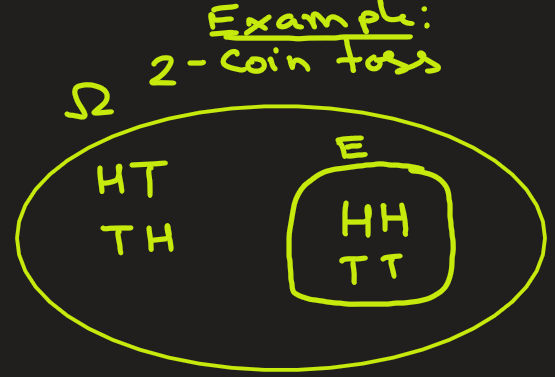 Example:
2-Coin toss
Ω
E
HT
HH
TH
TT